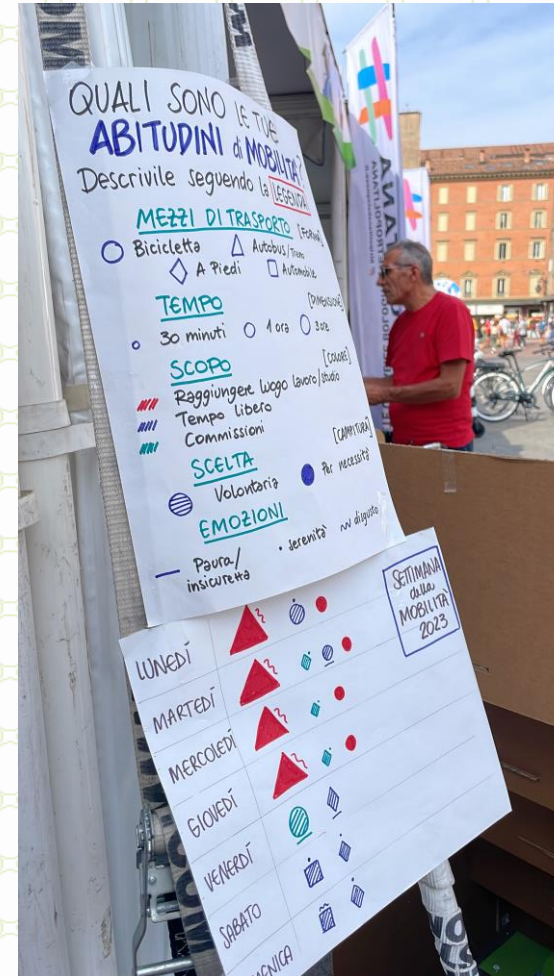 QUALI SONO LE TUE
ABITUDINI di MOBILITÀ?
Descrivile seguendo la LEGENDA
MEZZI DI TRASPORTO [FORMA]
Bicicletta Autobus/Treno
A Piedi Automobile
TEMPO [DIMENSIONE]
30 minuti 1 ora 3 ore
SCOPO [COLORE]
Raggiungere luogo lavoro/studio
Tempo libero
Commissioni
SCELTA [CAMPITURA]
Volontaria Per necessità
EMOZIONI
Paura/
insicurezza
serenità
disgusto
SETTIMANA
della
MOBILITÀ
2023
LUNEDÍ
MARTEDÍ
MERCOLEDÍ
GIOVEDÍ
VENERDÍ
SABATO